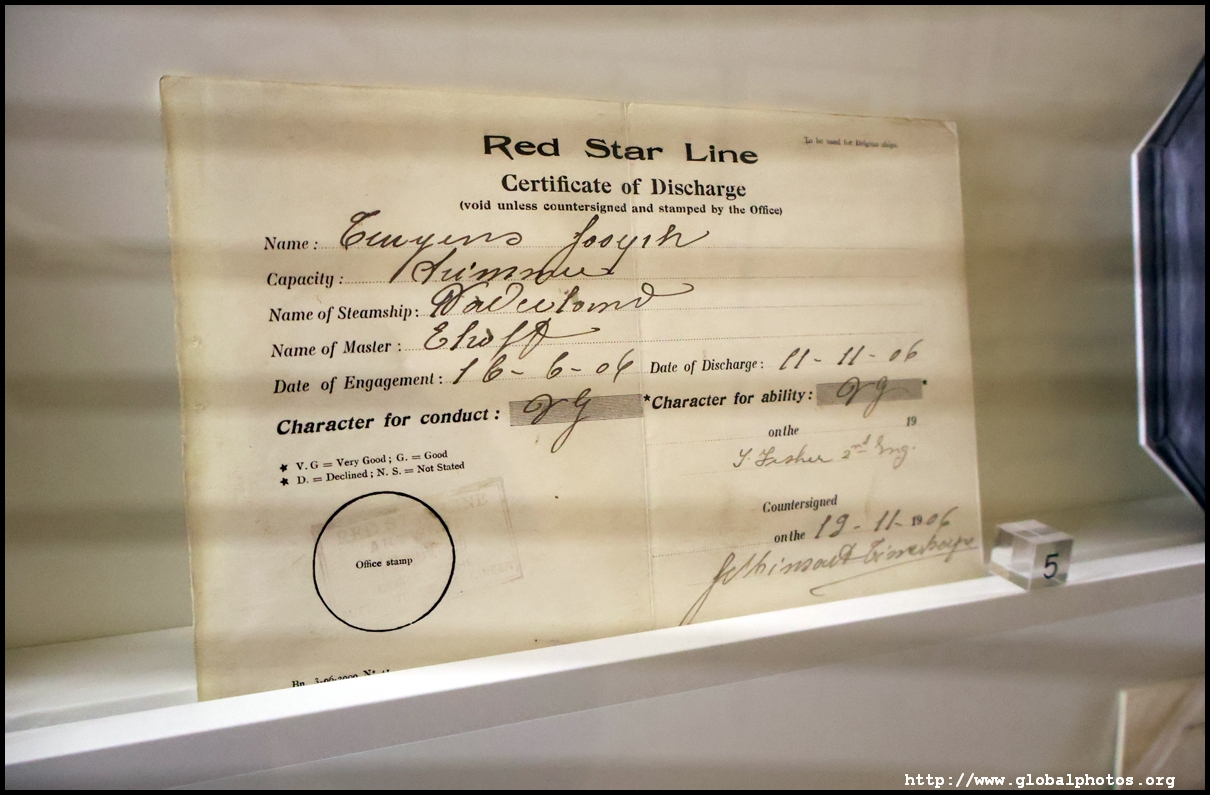 To be used for Belgian ships.
Red Star Line
Certificate of Discharge
(void unless countersigned and stamped by the Office)
Name: Joseph
Capacity: Trimmer
Name of Steamship: Vaderland
Name of Master: Ehoff
Date of Engagement: 16-6-06 Date of Discharge: 11-11-06
Character for conduct: VG *Character for ability: VG *
on the 19
2nd Eng.
★ V. G = Very Good; G. = Good
★ D. = Declined; N. S. = Not Stated
Countersigned
on the 19-11-1906
Office stamp
RED S NE
5
http://www.globalphotos.org